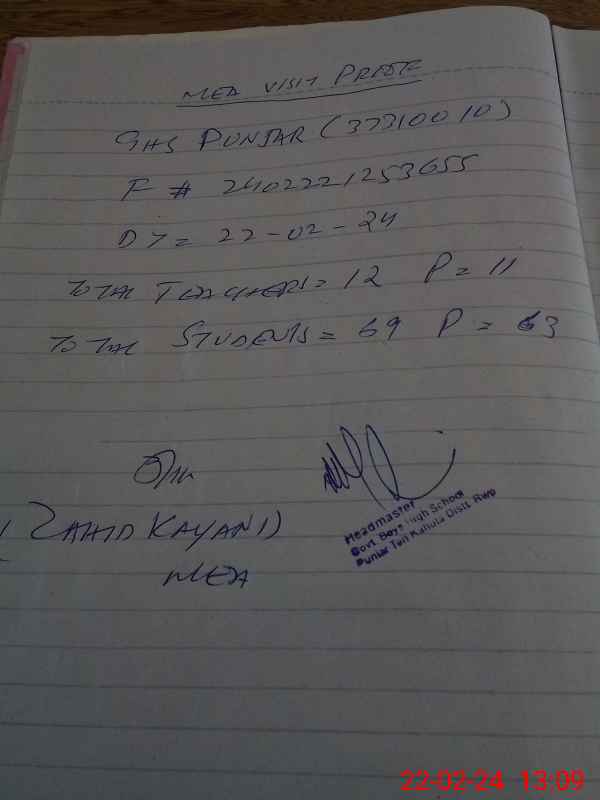 MEA VISIT PROOF
GHS PUNJAR (37310010)
F # 2402221253655
DT = 22-02-24
TOTAL TEACHERS = 12 P = 11
TOTAL STUDENTS = 69 P = 63
(ZAHID KAYANI)
MEA
Headmaster
Govt. Boys High School
Punjar Teh Kahuta Distt. Rwp
22-02-24 13:09